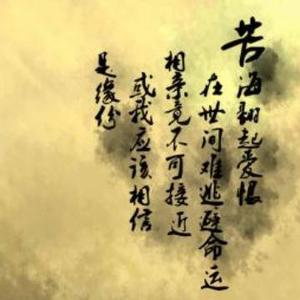 苦海翻起爱恨
在世间难逃避命运
相亲竟不可接近
或我应该相信
是缘份